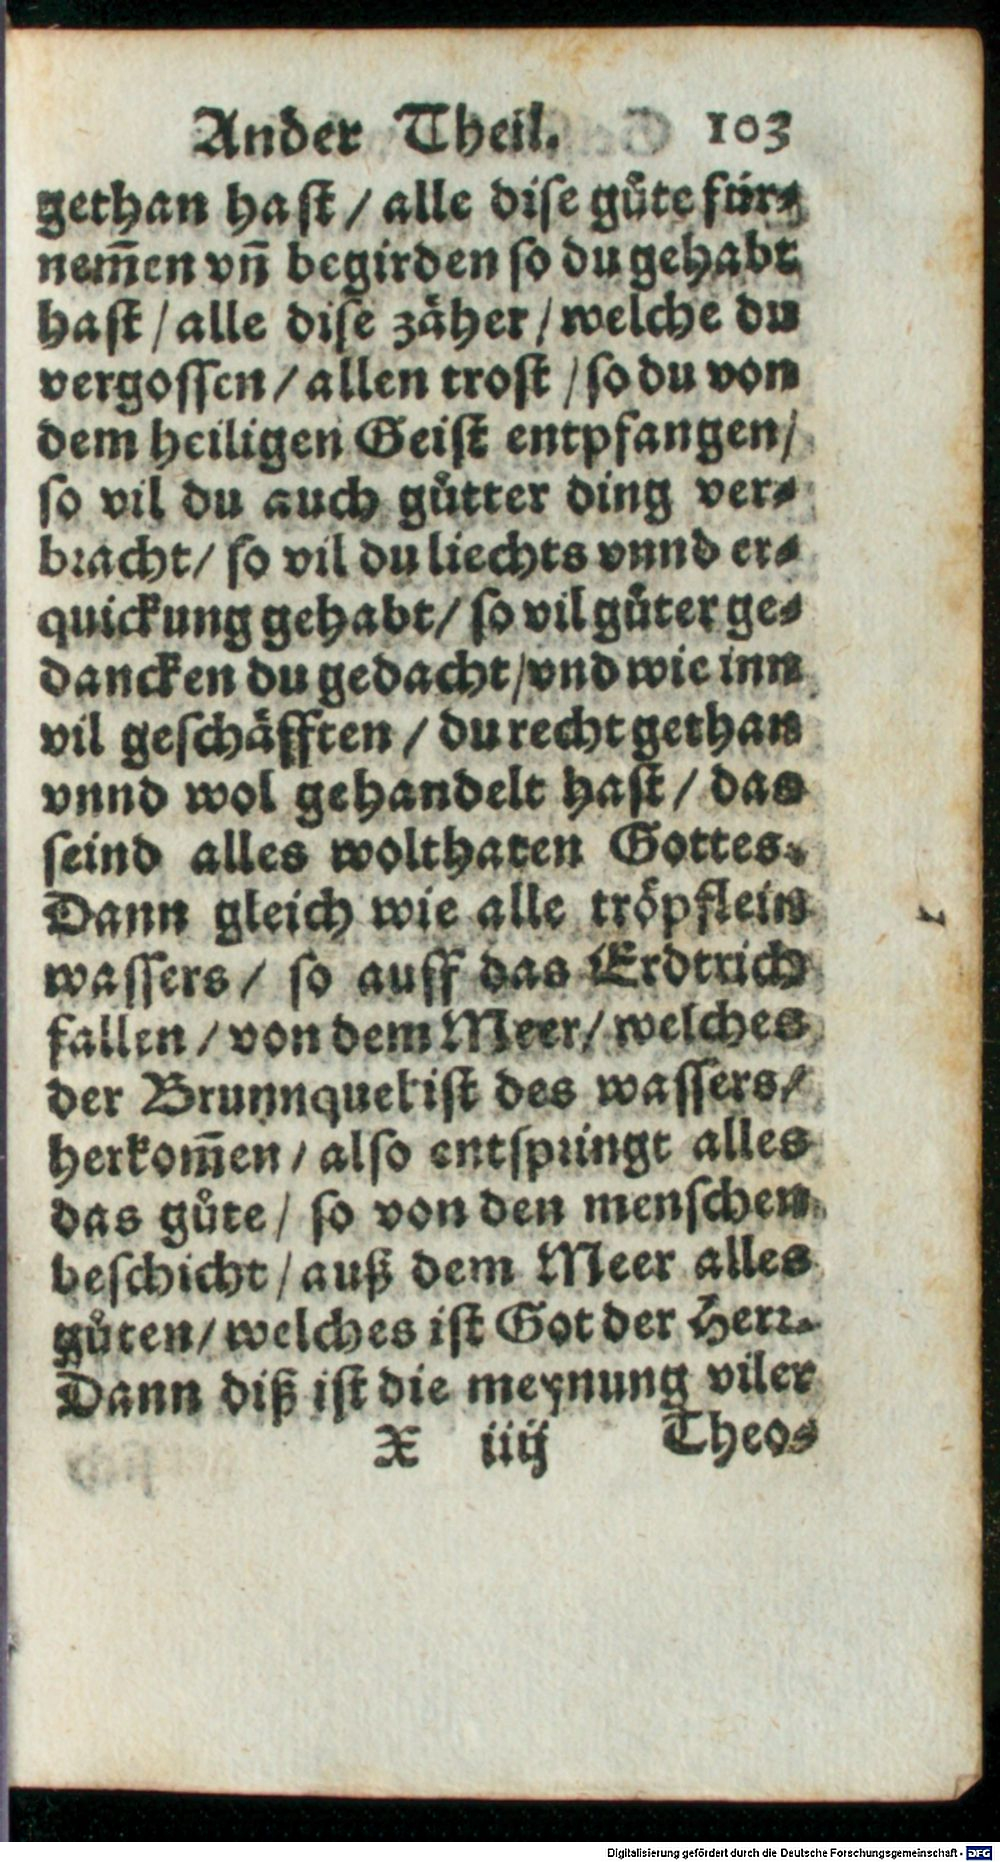 Ander Theil. 103
gethan hast / alle dise gůte für⸗
nem̄en vn̄ begirden so du gehabt
hast / alle dise zäher / welche du
vergossen / allen trost / so du von
dem heiligen Geist entpfangen /
so vil du auch gůtter ding ver⸗
bracht / so vil du liechts vnnd er⸗
quickung gehabt / so vil gůter ge⸗
dancken du gedacht / vnd wie inn
vil geschäfften / du recht gethan
vnnd wol gehandelt hast / das
seind alles wolthaten Gottes.
Dann gleich wie alle tröpflein
wassers / so auff das Erdtrich
fallen / von dem Meer / welches
der Brunnquel ist des wassers /
herkom̄en / also entspringt alles
das gůte / so von den menschen
beschicht / auß dem Meer alles
gůten / welches ist Got der Herr.
Dann diß ist die meynung viler
X iiij Theo⸗
Digitalisierung gefördert durch die Deutsche Forschungsgemeinschaft - DFG